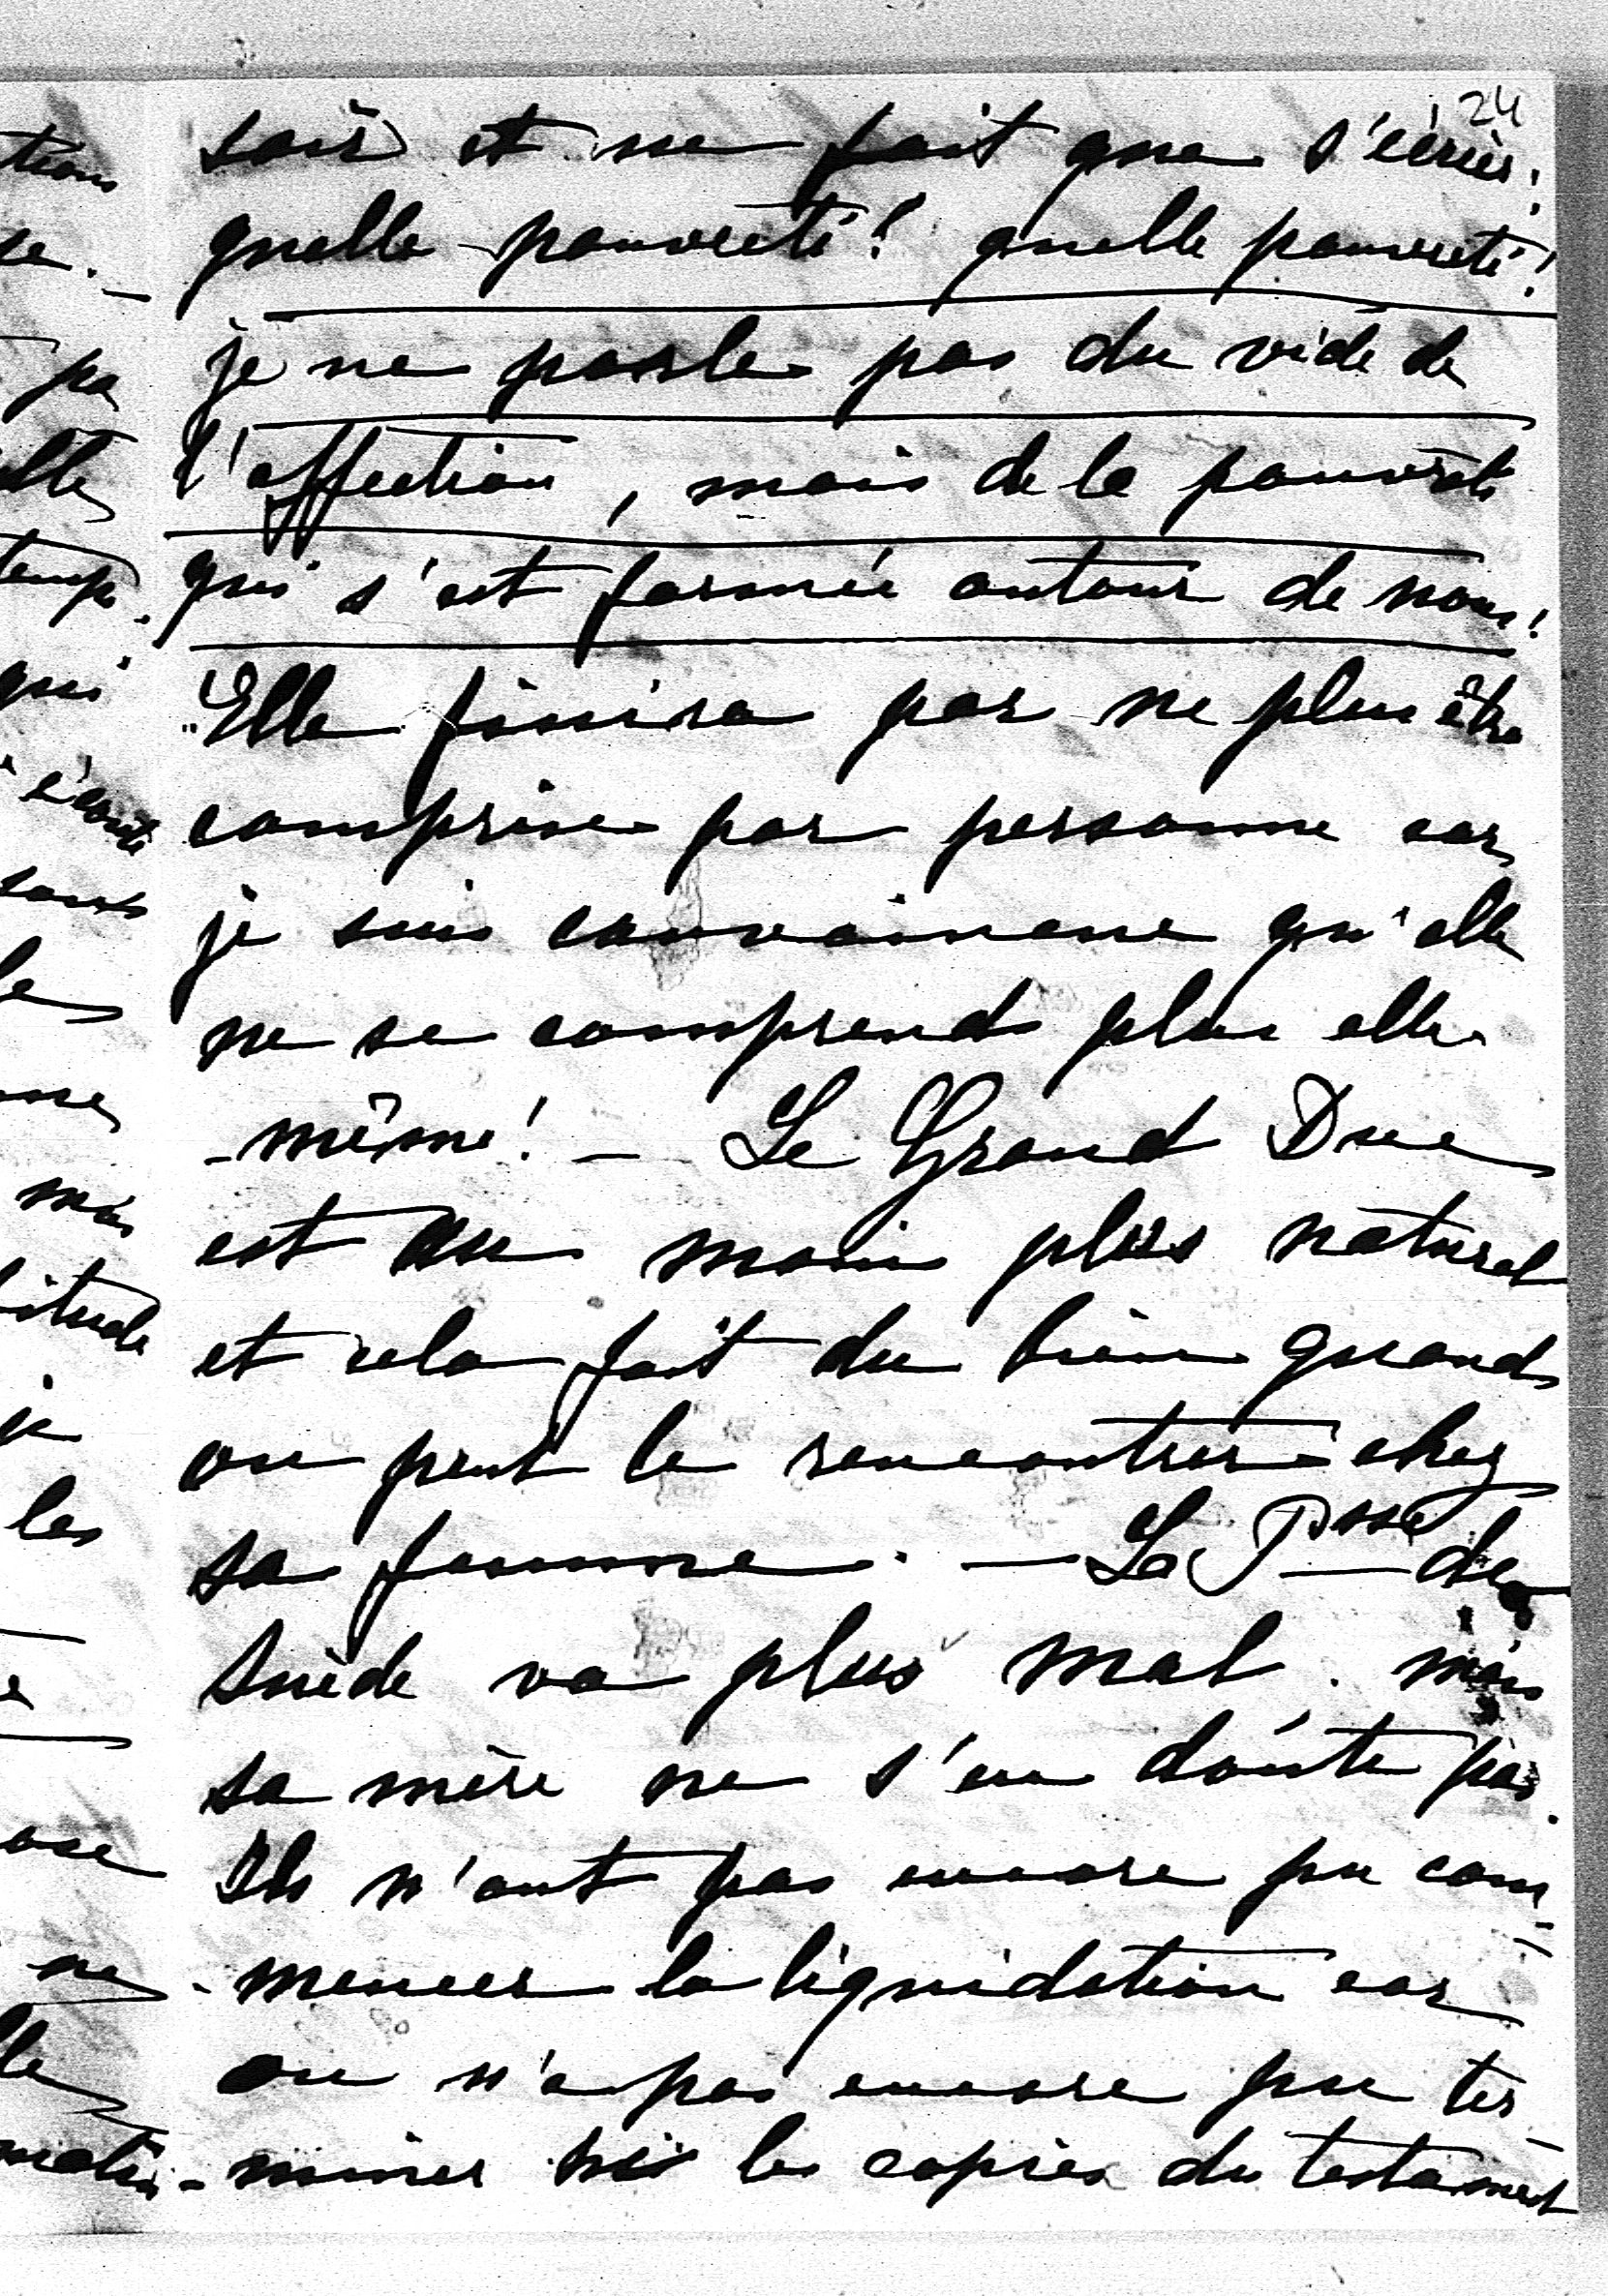 24
soir et ne fait que s'écrier:
quelle pauvreté! quelle pauvreté!
je ne parle pas du vide de
l'affection, mais de la pauvreté
qui s'est formée autour de nous!
Elle finira par ne plus être
comprise par personne car
je suis convaincue qu'elle
ne se comprend plus elle
-même! - Le Grand Duc
est au moins plus naturel
et cela fait du bien quand
on peut le rencontrer chez
sa femme. - La Psse de
Suède va plus mal. mais
sa mère ne s'en doute pas.
Ils n'ont pas encore pu com-
-mencer la liquidation car
on n'a pas encore pu ter-
-miner les copies du testament
tions
se. -
pa
elle
temps.
qui
écoute
sans
le
me
mais
bitude
je
les
ose
ne
le